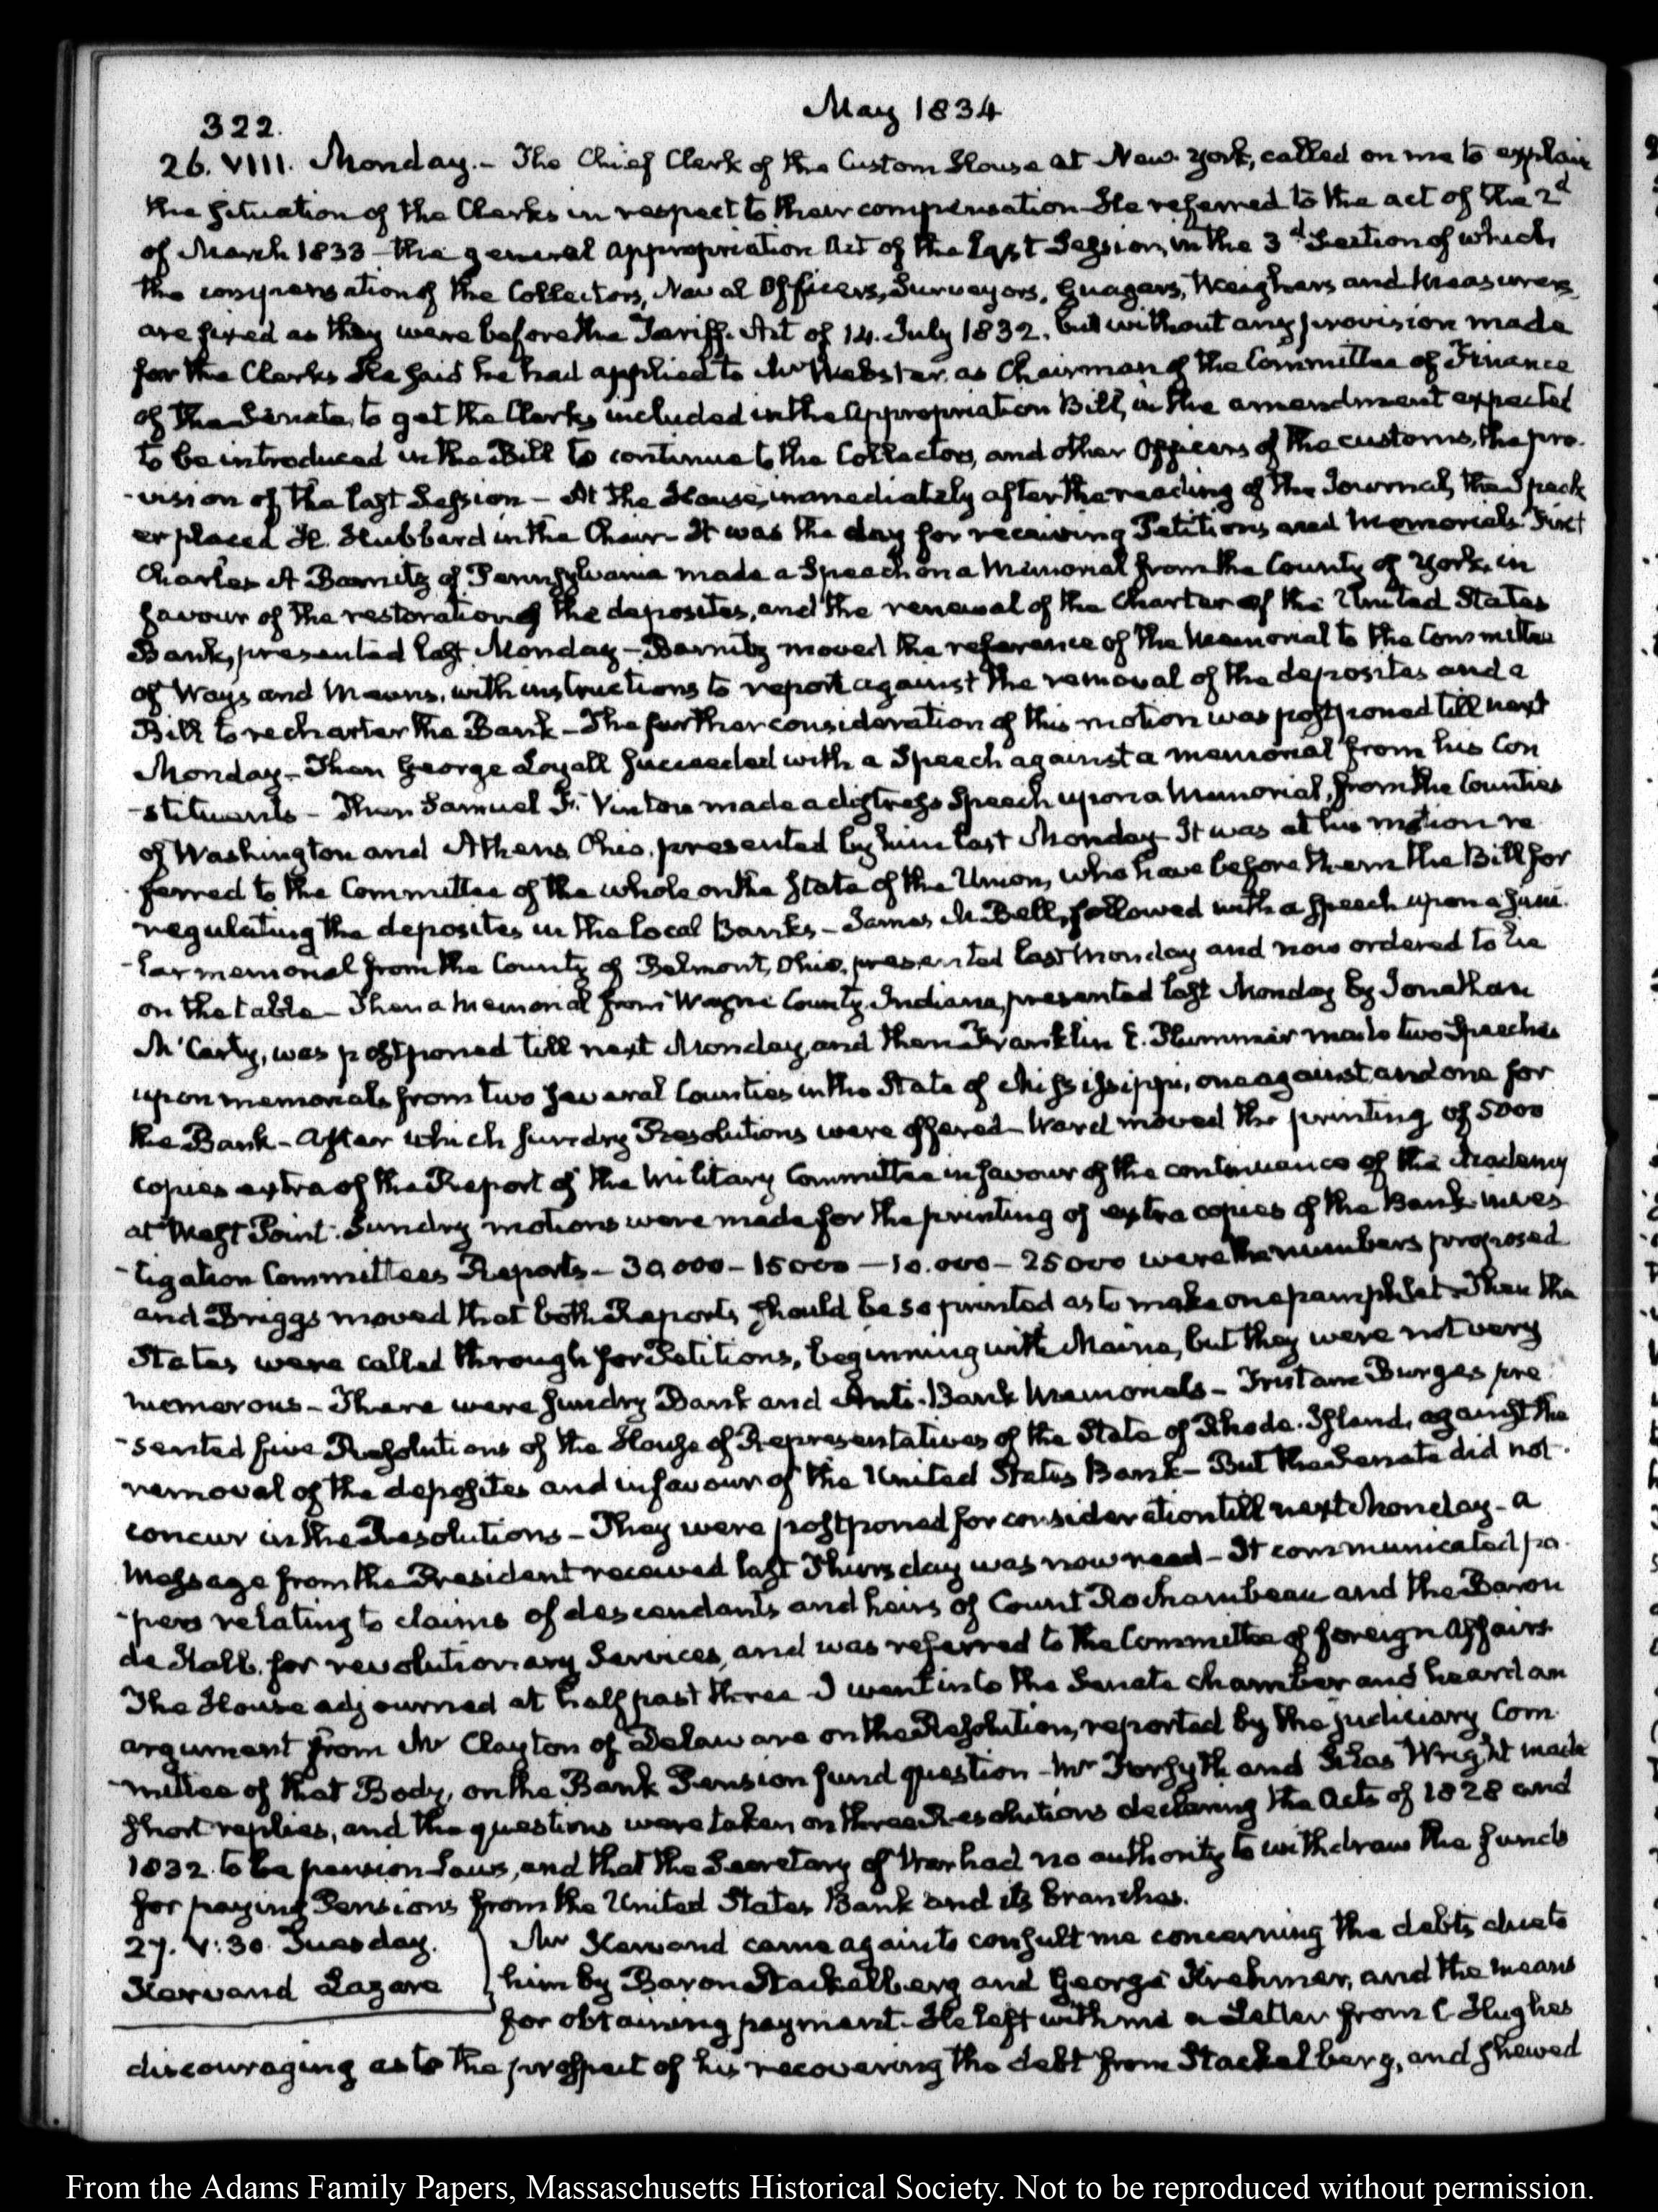 May 1834
322.
26. VIII. Monday.- The Chief Clerk of the Custom House at New-York, called on me to explain
the situation of the Clerks in respect to their compensation He referred to the act of the 2d
of March 1833 - the general appropriation Act of the last Session, in the 3d Section of which
the compensation of the Collectors, Naval Officers, Surveyors, Guagers, Weighers and Measurers
are fixed as they were before the Tariff Act of 14. July 1832. but without any provision made
for the Clerks He said he had applied to Mr Webster, as Chairman of the Committee of Finance
of the Senate, to get the Clerks included in the appropriation Bill, in the amendment expected
to be introduced in the Bill to continue to the Collectors, and other Officers of the customs, the pro-
-vision of the last Session - At the House, immediately after the reading of the Journal, the Speak
er placed H. Hubbard in the Chair - It was the day for receiving Petitions and Memorials. First
Charles A Barnitz of Pennsylvania made a Speech on a Memorial from the County of York, in
favour of the restoration of the deposites, and the renewal of the Charter of the United States
Bank, presented last Monday - Barnitz moved the reference of the Memorial to the Committee
of Ways and Means, with instructions to report against the removal of the deposites and a
Bill to recharter the Bank - The further consideration of this motion was postponed till next
Monday - Then George Loyall succeeded with a Speech against a memorial from his Con
-stituents - Then Samuel F. Vinton made a distress Speech upon a Memorial, from the Counties
of Washington and Athens, Ohio, presented by him last Monday - It was at his motion re
ferred to the Committee of the whole on the state of the Union, who have before them the Bill for
regulating the deposites in the local Banks - James M. Bell, followed with a speech upon a simi-
-lar memorial from the County of Belmont, Ohio, presented last Monday and now ordered to lie
on the table - Then a Memorial from Wayne County, Indiana, presented last Monday by Jonathan
McCarty, was postponed till next Monday, and then Franklin E. Plummer made two Speeches
upon memorials from two several Counties in the State of Mississippi, one against and one for
the Bank - After which sundry Resolutions were offered - Ward moved the printing of 5000
copies extra of the Report of the Military Committee in favour of the continuance of the Academy
at West Point. Sundry motions were made for the printing of extra copies of the Bank inves
-tigation Committees Reports - 30,000 - 15000 - 10.000 - 25000 were the numbers proposed
and Briggs moved that both Reports should be so printed as to make one pamphlet - Then the
States were called through for Petitions, beginning with Maine, but they were not very
numerous - There were sundry Bank and Anti-Bank Memorials - Tristam Burges pre
-sented five Resolutions of the House of Representatives of the State of Rhode-Island, against the
removal of the deposites and in favour of the United States Bank - But the Senate did not
concur in the Resolutions - They were postponed for consideration till next Monday - a
Message from the President received last Thursday was now read - It communicated pa
-pers relating to claims of descendants and heirs of Count Rochambeau and the Baron
de Kalb, for revolutionary Services, and was referred to the Committee of foreign Affairs.
The House adjourned at half past three - I went into the Senate chamber and heard an
argument from Mr Clayton of Delaware on the Resolution, reported by the judiciary Com
-mittee of that Body, on the Bank Pension fund question - Mr Forsyth and Silas Wright made
short replies, and the questions were taken on three Resolutions declaring the Acts of 1828 and
1832. to be pension Laws, and that the Secretary of War had no authority to withdraw the funds
for paying Pensions from the United States Bank and its branches.
27. V:30. Tuesday.
Kervand Lazare
Mr Kervand came again to consult me concerning the debts due to
him by Baron Stackelberg and George Krehmer, and the means
for obtaining payment - He left with me a Letter from C Hughes
discouraging as to the prospect of his recovering the debt from Stackelberg, and shewed
From the Adams Family Papers, Massachusetts Historical Society. Not to be reproduced without permission.